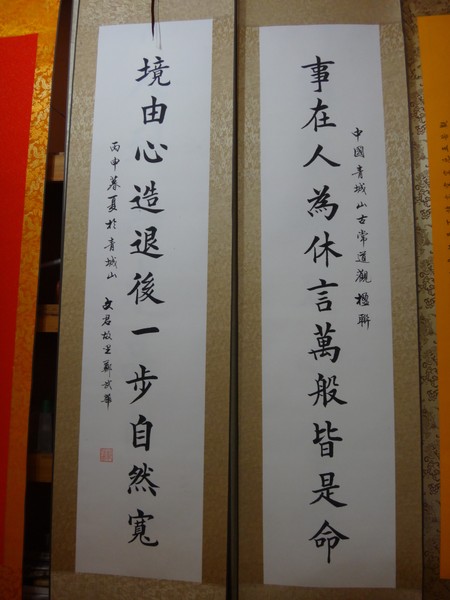 中國青城山古常道觀楹聯
事在人為休言萬般皆是命
境由心造退後一步自然寬
丙申暮夏於青城山 文君故里鄭武華